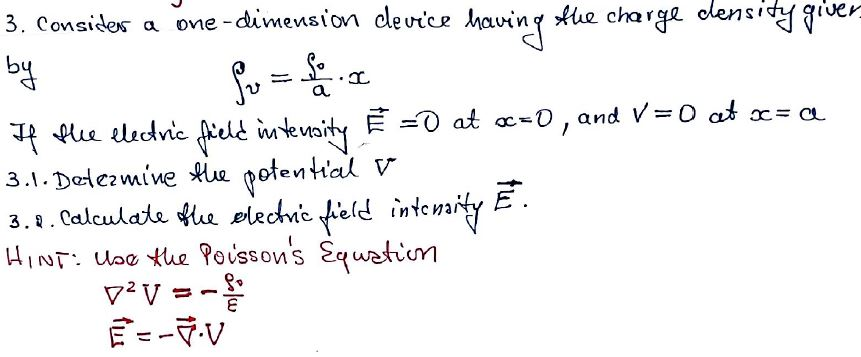 3. Consider a one-dimension device having the charge density given
by ρv = ρo/a · x
If the electric field intensity E⃗ = 0 at x=0, and V=0 at x=a
3.1. Determine the potential V
3.2. Calculate the electric field intensity E⃗.
HINT: Use the Poisson's Equation
∇²V = -ρv/ε
E⃗ = -∇⃗·V